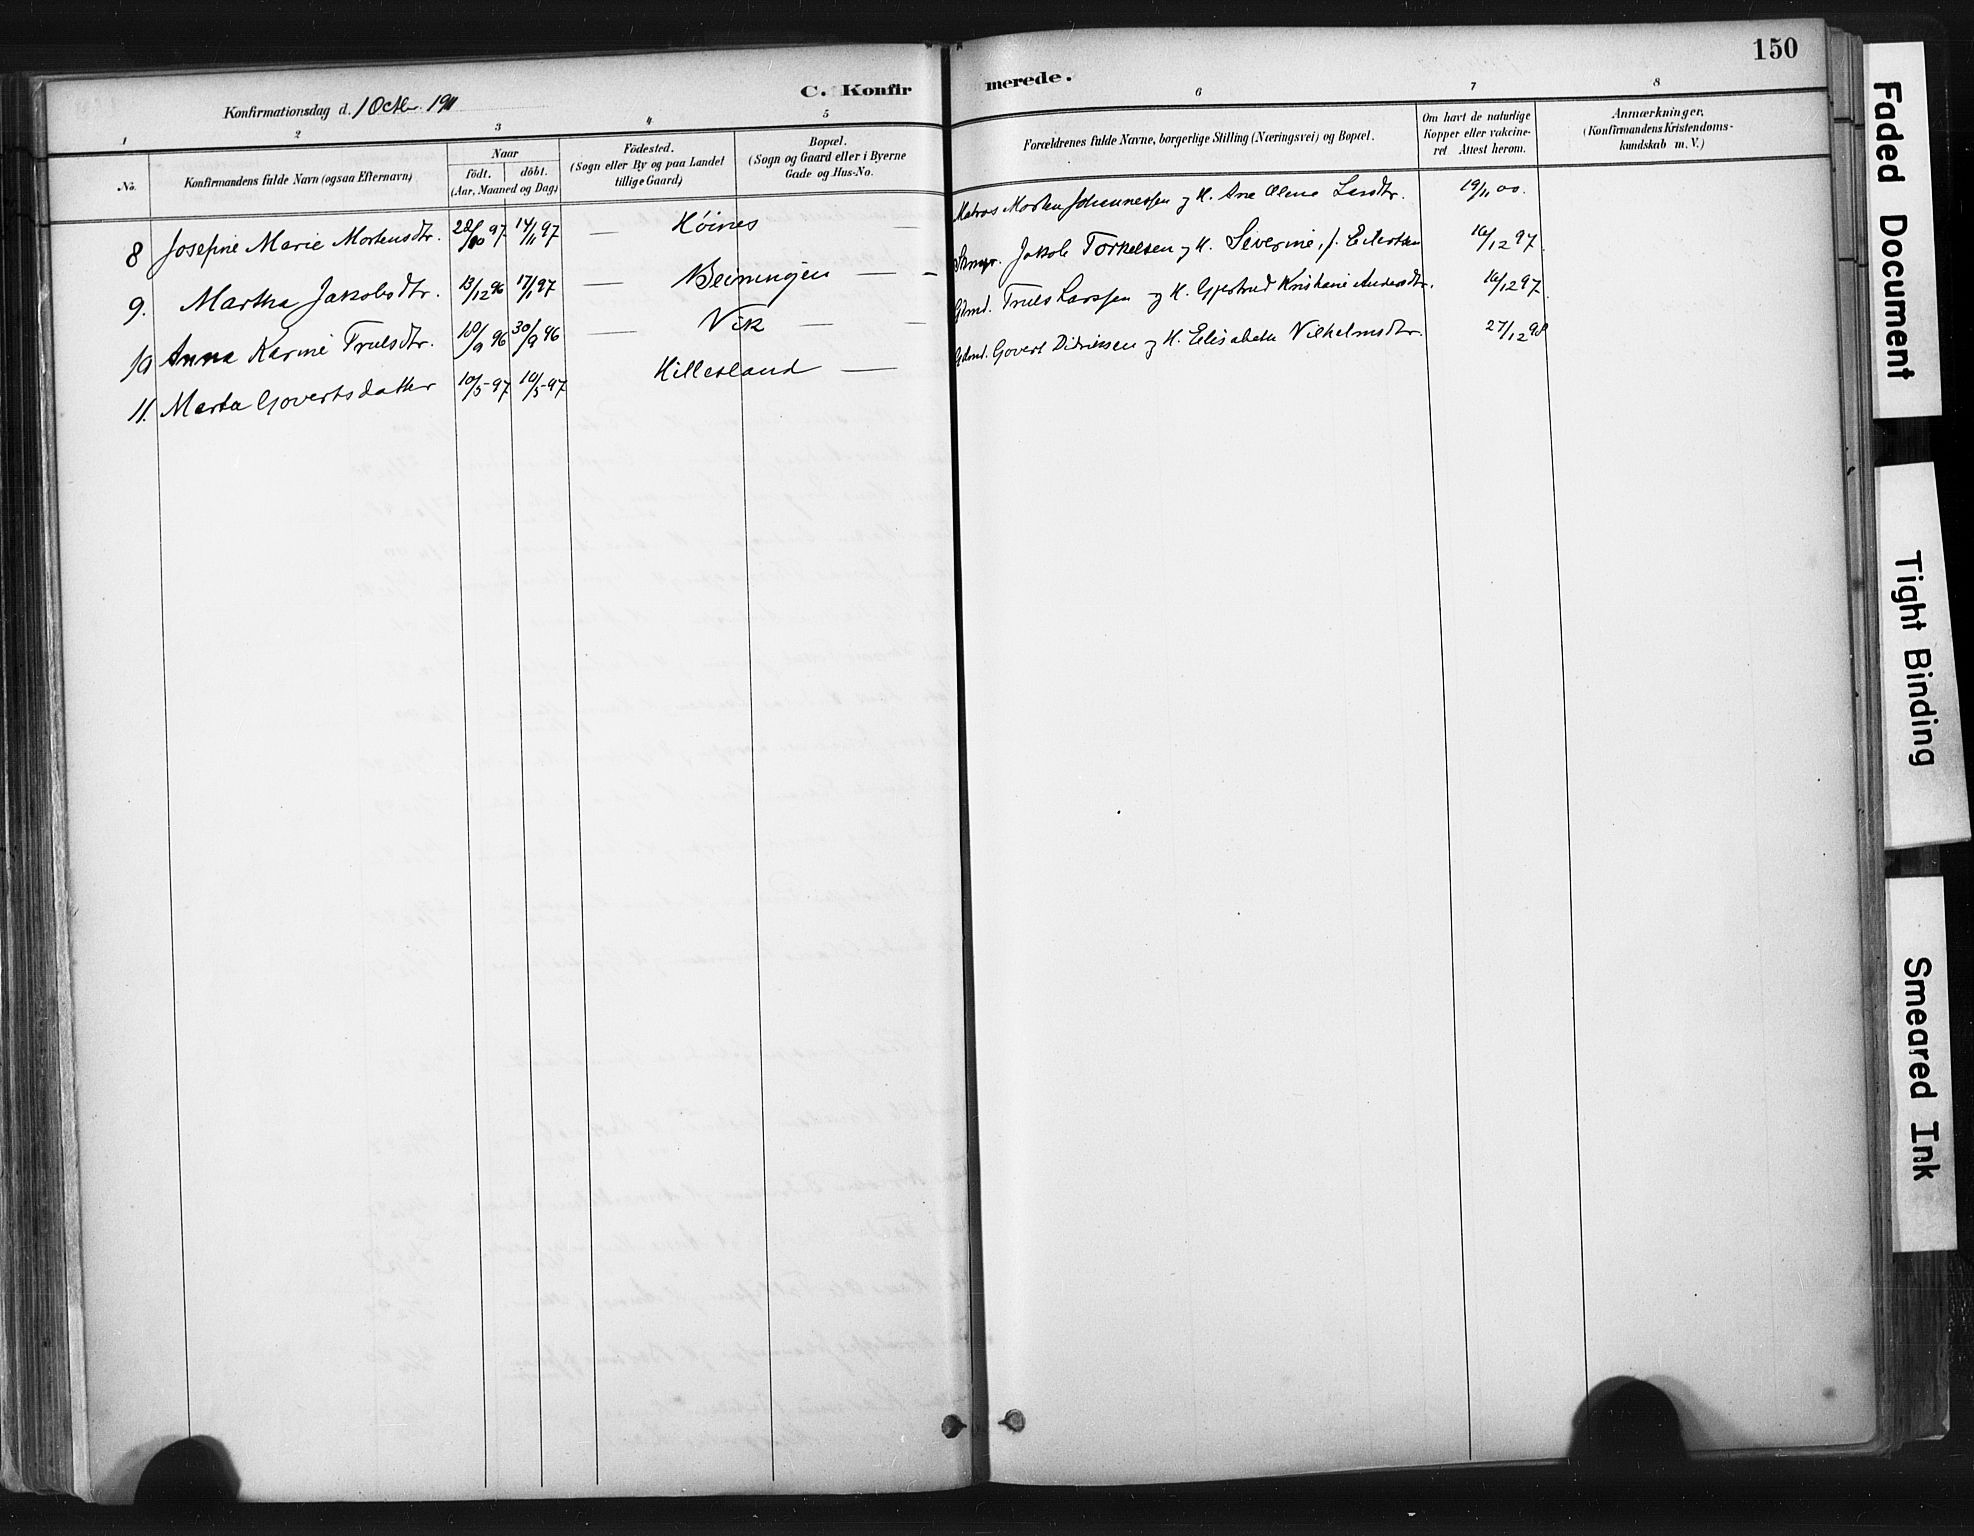 150
C. Konfirmerede.
Konfirmationsdag d. 1 Octbr. 1911
1 2 3 4 5 6 7 8
No.
Konfirmandens fulde Navn (ogsaa Efternavn)
Naar
födt. döbt.
(Aar, Maaned og Dag)
Födested.
(Sogn eller By og paa Landet
tillige Gaard)
Bopæl.
(Sogn og Gaard eller i Byerne
Gade og Hus-No.
Forældrenes fulde Navne, borgerlige Stilling (Næringsvei) og Bopæl.
Om havt de naturlige
Kopper eller vakcine-
ret Attest herom.
Anmærkninger,
(Konfirmandens Kristendoms-
kundskab m. V.)
8 Josefine Marie Mortensdtr. 28/10 97 14/11 97 — Höines — Matros Morten Johannessen og H. Ane Olene Larsdtr. 19/11 00.
9. Martha Jakobsdtr. 13/12 96 17/1 97 — Beiningen — — Jakob Torkelsen og H. Severine, f. Eilertsen 16/12 97.
10 Anna Karine Trulsdtr. 10/9 96 30/9 96 — Vik — — Gdmd. Truls Larssen og H. Gjertrud Kristiane Andersdtr. 16/12 97.
11. Marta Govertsdatter 10/5 97 10/5 97 Hillesland — Gdmd. Govert Didriksen og H. Elisabeth Vilhelmsdtr. 27/12 98
Faded Document
Tight Binding
Smeared Ink